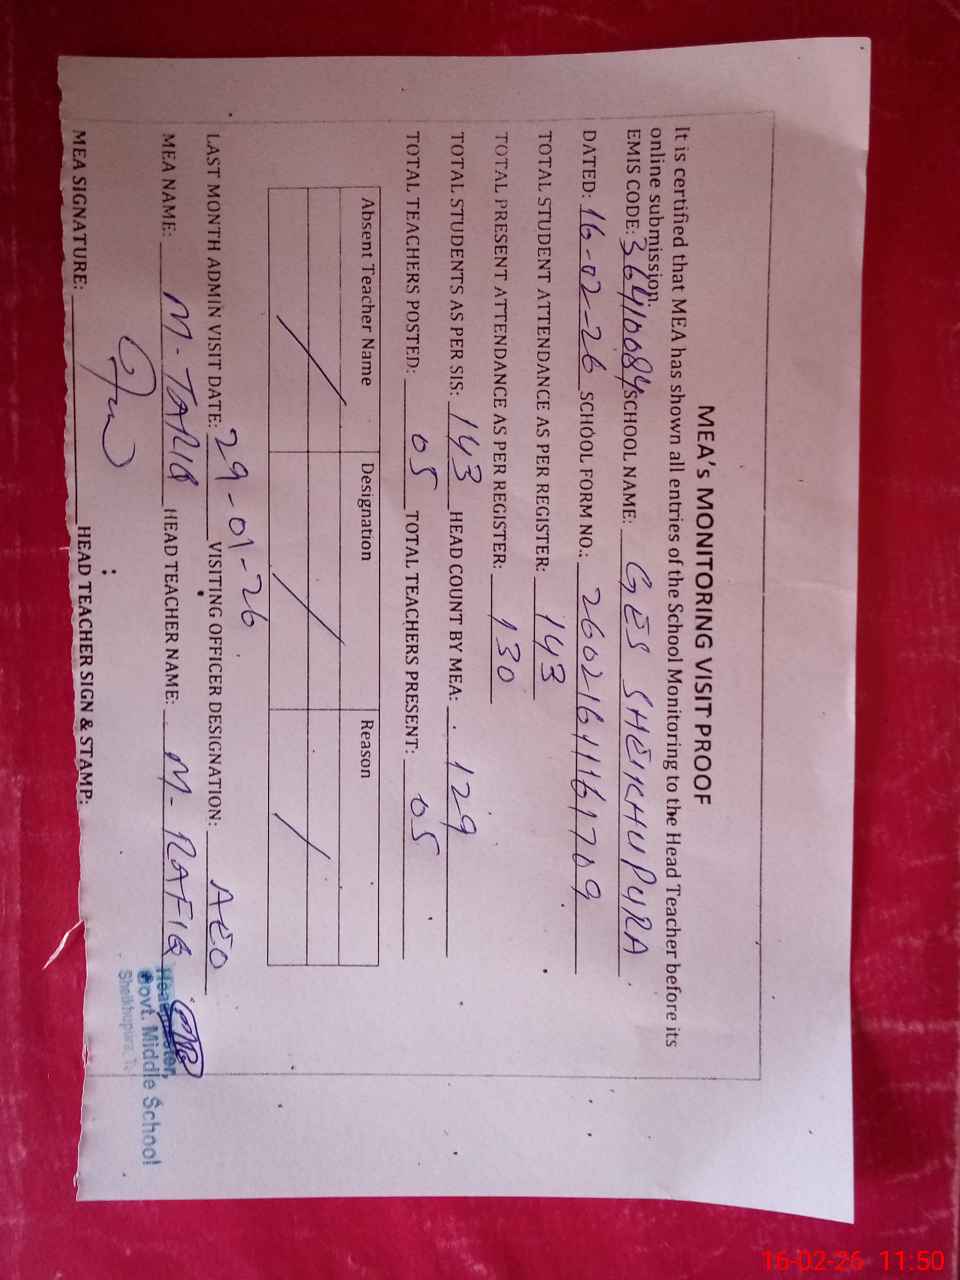 MEA's MONITORING VISIT PROOF
It is certified that MEA has shown all entries of the School Monitoring to the Head Teacher before its
online submission.
EMIS CODE: 36410084 SCHOOL NAME: GES SHEIKHUPURA
DATED: 16-02-26 SCHOOL FORM NO.: 26021641161709
TOTAL STUDENT ATTENDANCE AS PER REGISTER: 143
TOTAL PRESENT ATTENDANCE AS PER REGISTER: 130
TOTAL STUDENTS AS PER SIS: 143 HEAD COUNT BY MEA: 129
TOTAL TEACHERS POSTED: 05 TOTAL TEACHERS PRESENT: 05
Absent Teacher Name Designation Reason
LAST MONTH ADMIN VISIT DATE: 29-01-26 VISITING OFFICER DESIGNATION: AEO
MEA NAME: M-TARIQ HEAD TEACHER NAME: M-RAFIQ
MEA SIGNATURE: HEAD TEACHER SIGN & STAMP:
Headmaster,
Govt. Middle School
Sheikhupura,
16-02-26 11:50